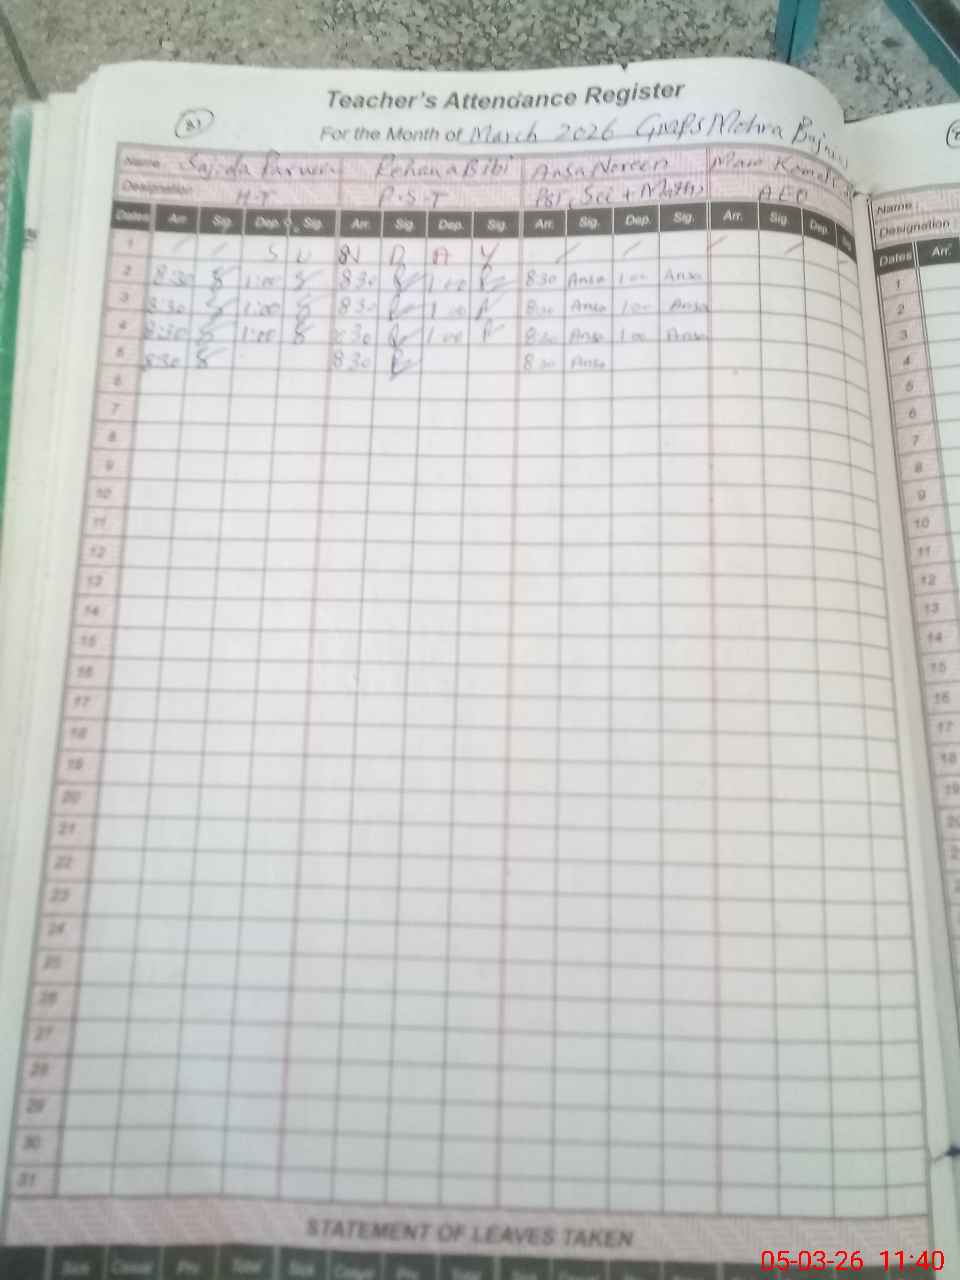 Teacher's Attendance Register
81
For the Month of March 2026 GMPS Mohra
Name : Sajida Parveen Rehana Bibi Ansa Noreen
Designation : H-T P.S.T PST, Sci + Maths AEO
Dates Arr. Sig. Dep. Sig. Arr. Sig. Dep. Sig. Arr. Sig. Dep. Sig. Arr. Sig. Dep.
1 S U N D A Y
2 8:30 1:00 8 30 1 00 8 30 Ansa 1 00 Ansa
3 8:30 1:00 8 30 1 00 8 30 Ansa 1 00 Ansa
4 8:30 1:00 8 30 1 00 8 30 Ansa 1 00 Ansa
5 8 30 8 30 8 30 Ansa
6
7
8
9
10
11
12
13
14
15
16
17
18
19
20
21
22
23
24
25
26
27
28
29
30
31
STATEMENT OF LEAVES TAKEN
Name :
Designation :
Dates Arr.
1
2
3
4
5
6
7
8
9
10
11
12
13
14
15
16
17
18
05-03-26 11:40